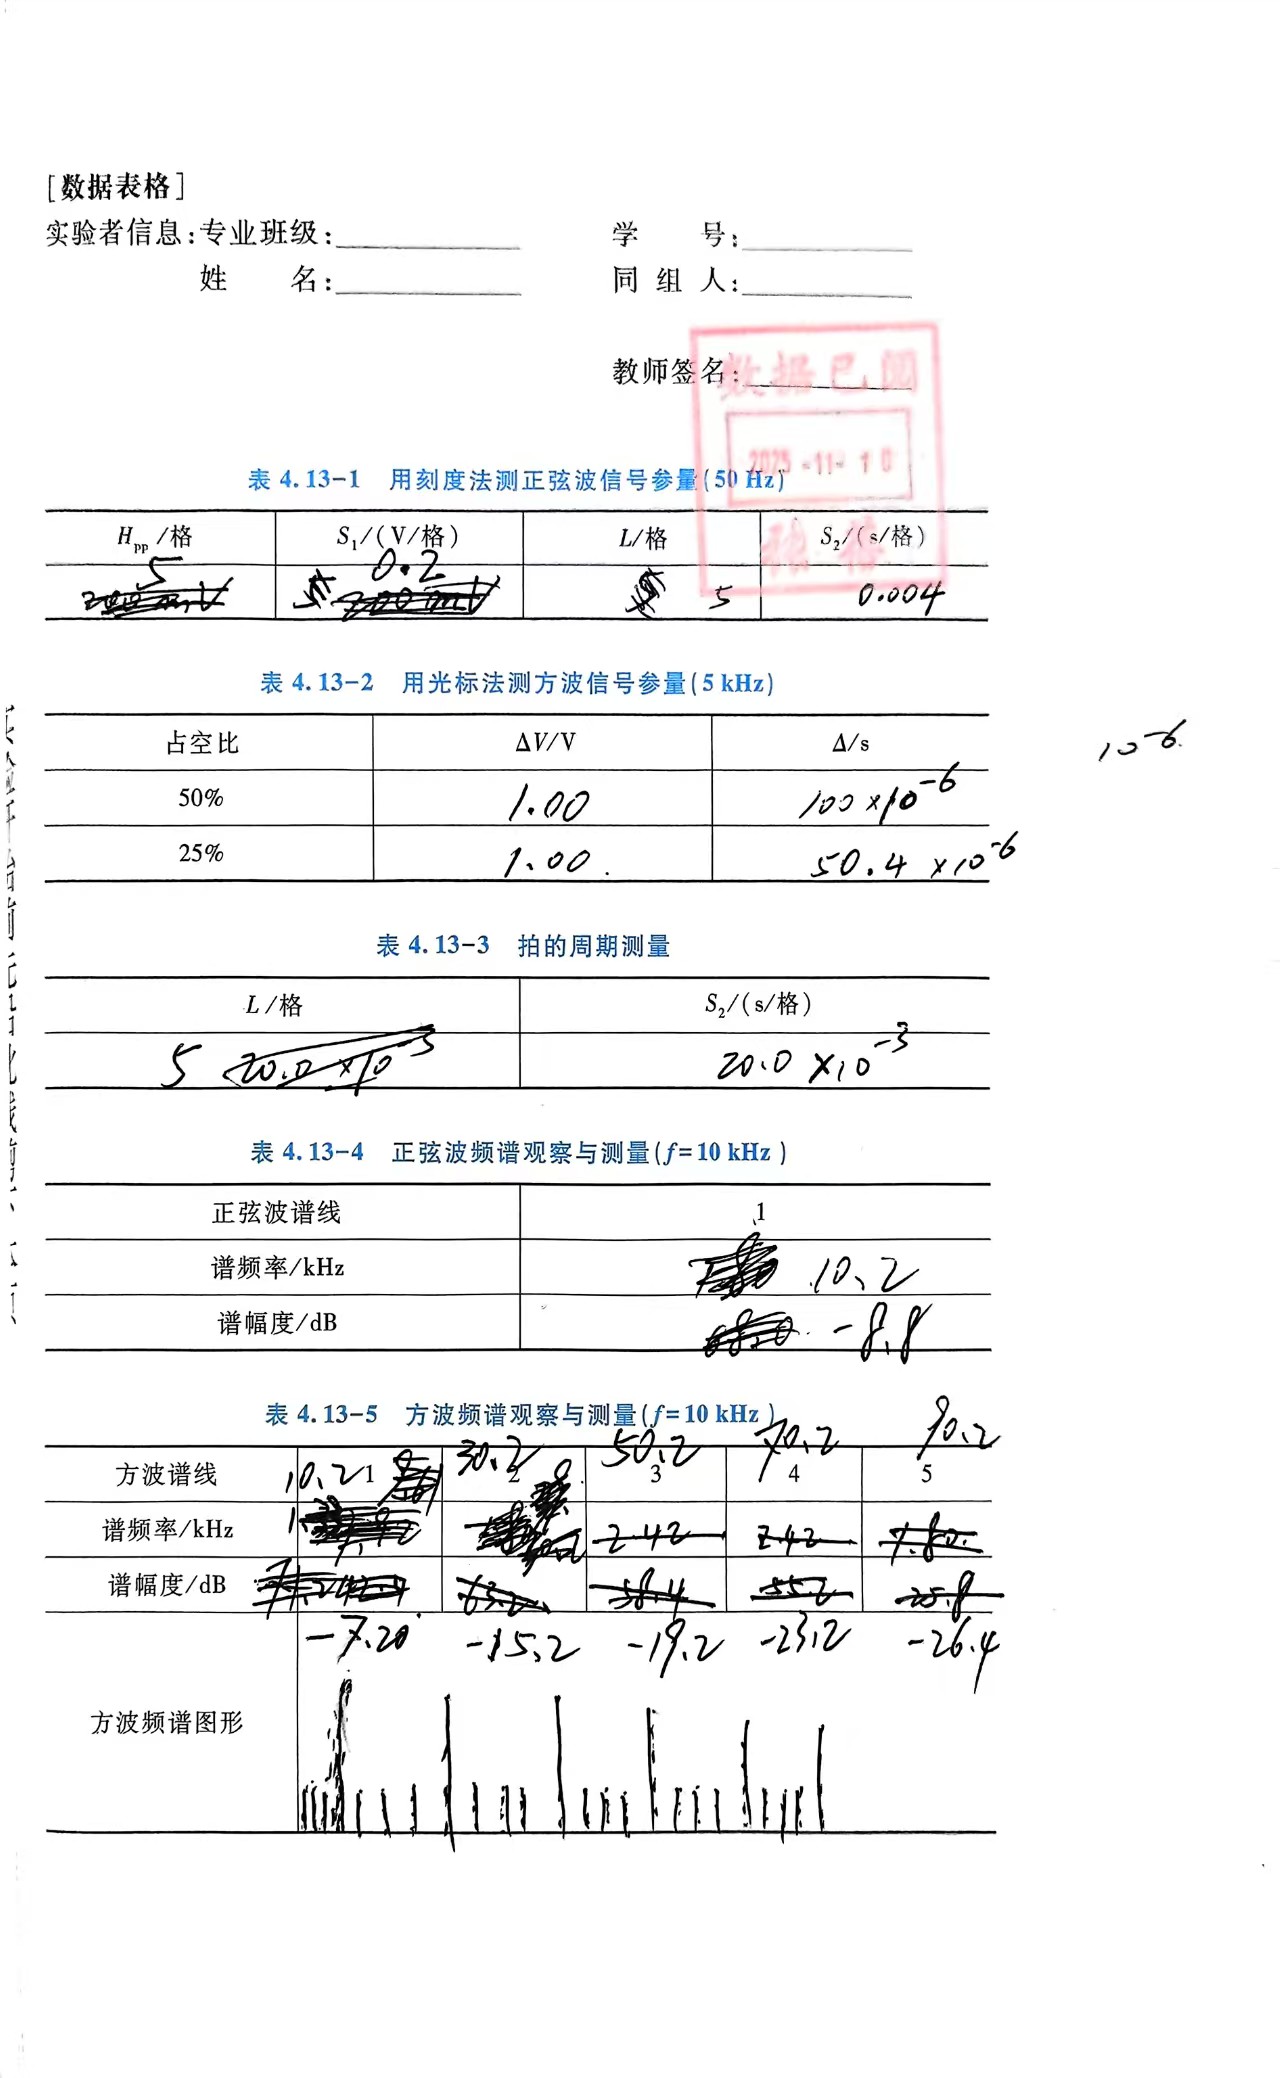 [数据表格]
实验者信息:专业班级: 学 号:
姓 名: 同 组 人:
教师签名:
数据已阅
2025-11-10
表 4.13-1 用刻度法测正弦波信号参量(50 Hz)
Hpp/格 S1/(V/格) L/格 S2/(s/格)
5 0.2 5 0.004
表 4.13-2 用光标法测方波信号参量(5 kHz)
占空比 ΔV/V Δ/s
10-6
50% 1.00 100×10-6
25% 1.00 50.4×10-6
表 4.13-3 拍的周期测量
L/格 S2/(s/格)
5 20.0×10-3 20.0×10-3
表 4.13-4 正弦波频谱观察与测量(f=10 kHz)
正弦波谱线 1
谱频率/kHz 10.2
谱幅度/dB -8.8
表 4.13-5 方波频谱观察与测量(f=10 kHz)
10.2 30.2 50.2 70.2 90.2
方波谱线 1 2 3 4 5
谱频率/kHz 2.42 2.42
谱幅度/dB 63.2 58.4 55.2 25.8
-7.20 -15.2 -19.2 -23.2 -26.4
方波频谱图形